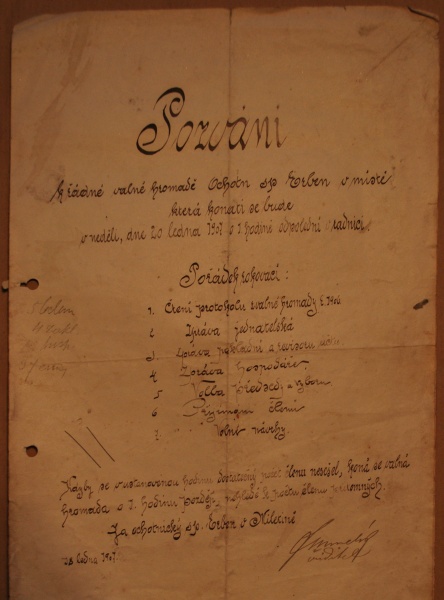 Pozvání
k řádné valné hromadě Ochotn sp. Erben v místě
která konati se bude
v neděli, dne 20 ledna 1907 o 1 hodině odpolední v radnici.
Pořádek rokovací:
1. Čtení protokolu z valné hromady
2 Zpráva jednatelská
3. Zpráva pokladní a revisorů
4 Zpráva hospodáře.
5 Volba předsedy a výboru
6 Přijímání členů
7. Volné návrhy.
Kdyby se v ustanovenou hodinu dostatečný počet členů nesešel, koná se valná
hromada o 1. hodinu později, nehledě k počtu členů přítomných.
Za ochotnický sp. Erben v Miletíně
ledna 1907.